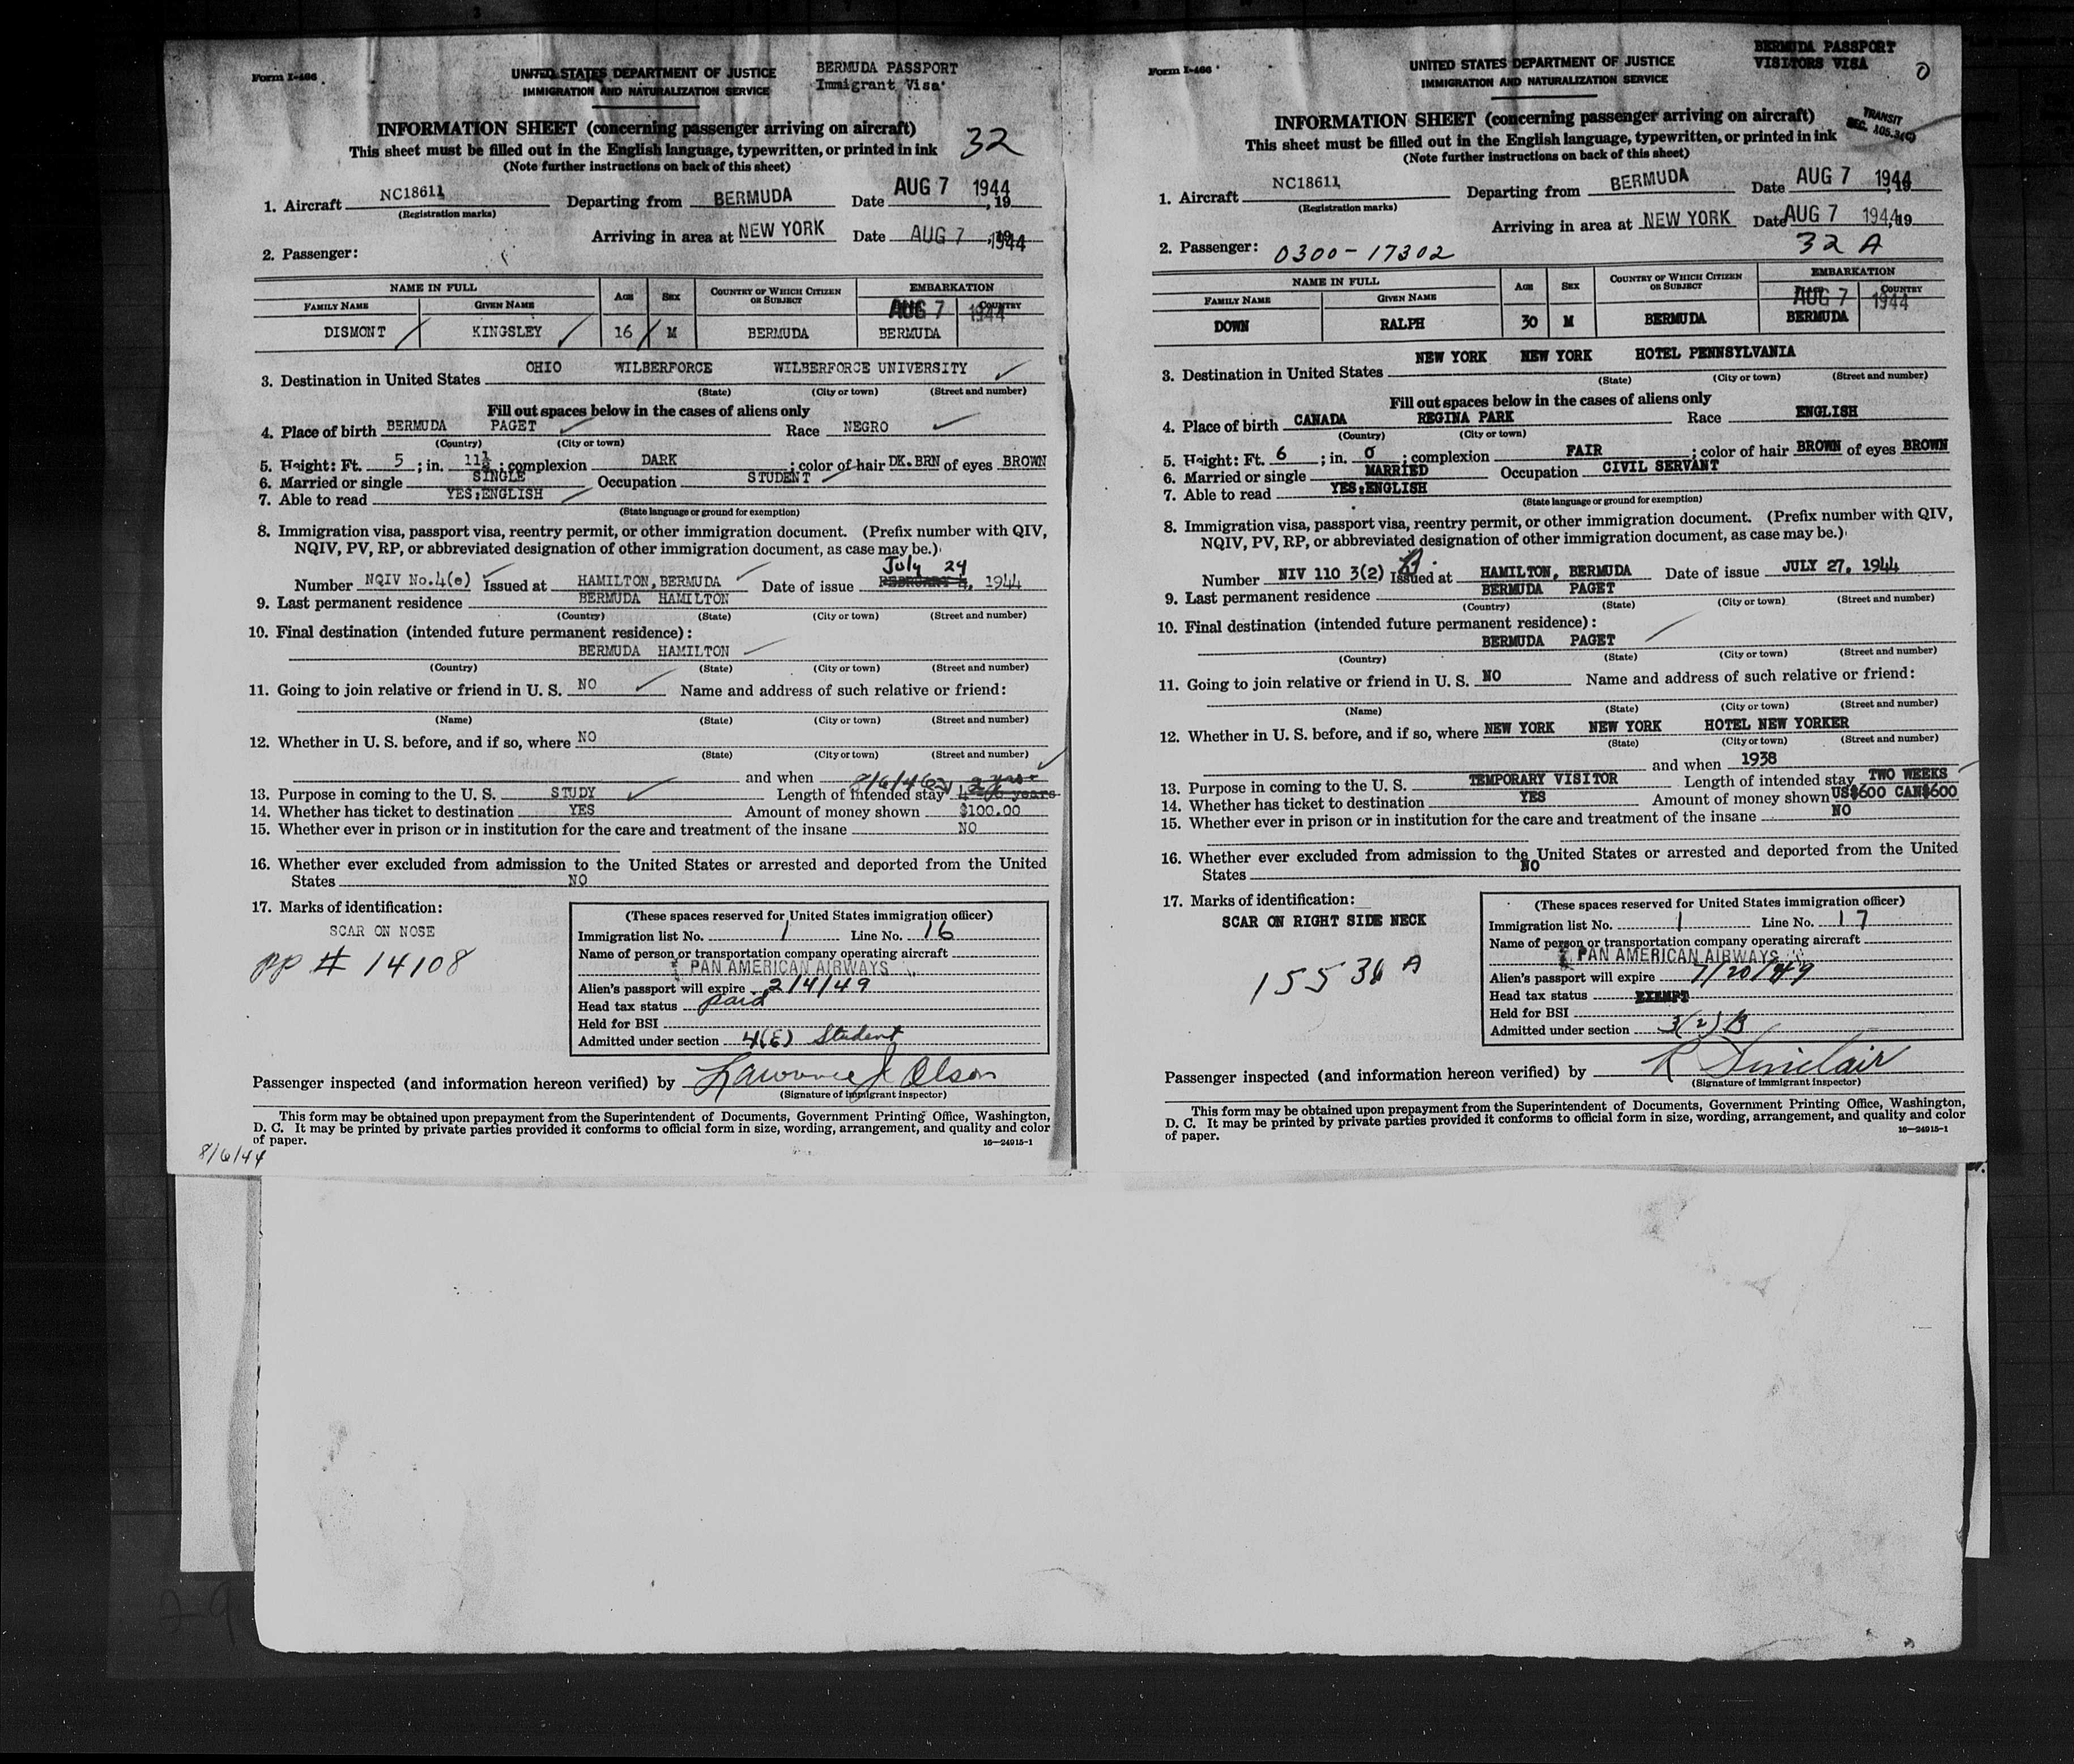 Form I-466
UNITED STATES DEPARTMENT OF JUSTICE
IMMIGRATION AND NATURALIZATION SERVICE
BERMUDA PASSPORT
Immigrant Visa
INFORMATION SHEET (concerning passenger arriving on aircraft)
This sheet must be filled out in the English language, typewritten, or printed in ink
(Note further instructions on back of this sheet)
32
1. Aircraft NC18611 Departing from BERMUDA Date AUG 7 1944, 19
(Registration marks)
Arriving in area at NEW YORK Date AUG 7, 1944
2. Passenger:
NAME IN FULL AGE SEX COUNTRY OF WHICH CITIZEN OR SUBJECT EMBARKATION
FAMILY NAME GIVEN NAME AUG 7 1944 COUNTRY
DISMONT KINGSLEY 16 M BERMUDA BERMUDA
3. Destination in United States OHIO WILBERFORCE WILBERFORCE UNIVERSITY
(State) (City or town) (Street and number)
Fill out spaces below in the cases of aliens only
4. Place of birth BERMUDA PAGET Race NEGRO
(Country) (City or town)
5. Height: Ft. 5; in. 11½; complexion DARK; color of hair DK.BRN of eyes BROWN
6. Married or single SINGLE Occupation STUDENT
7. Able to read YES;ENGLISH
(State language or ground for exemption)
8. Immigration visa, passport visa, reentry permit, or other immigration document. (Prefix number with QIV,
NQIV, PV, RP, or abbreviated designation of other immigration document, as case may be.)
July 24
Number NQIV No.4(e) Issued at HAMILTON,BERMUDA Date of issue FEBRUARY 4, 1944
9. Last permanent residence BERMUDA HAMILTON
(Country) (State) (City or town) (Street and number)
10. Final destination (intended future permanent residence):
BERMUDA HAMILTON
(Country) (State) (City or town) (Street and number)
11. Going to join relative or friend in U. S. NO Name and address of such relative or friend:
(Name) (State) (City or town) (Street and number)
12. Whether in U. S. before, and if so, where NO
(State) (City or town) (Street and number)
and when
13. Purpose in coming to the U. S. STUDY Length of intended stay years
14. Whether has ticket to destination YES Amount of money shown $100.00
15. Whether ever in prison or in institution for the care and treatment of the insane NO
16. Whether ever excluded from admission to the United States or arrested and deported from the United
States NO
17. Marks of identification:
SCAR ON NOSE
PP # 14108
(These spaces reserved for United States immigration officer)
Immigration list No. 1 Line No. 16
Name of person or transportation company operating aircraft
PAN AMERICAN AIRWAYS
Alien's passport will expire 2/4/49
Head tax status paid
Held for BSI
Admitted under section 4(E) Student
Passenger inspected (and information hereon verified) by Lawrence J Olson
(Signature of immigrant inspector)
This form may be obtained upon prepayment from the Superintendent of Documents, Government Printing Office, Washington,
D. C. It may be printed by private parties provided it conforms to official form in size, wording, arrangement, and quality and color
of paper. 16—24915-1
8/6/44
Form I-466
UNITED STATES DEPARTMENT OF JUSTICE
IMMIGRATION AND NATURALIZATION SERVICE
BERMUDA PASSPORT
VISITORS VISA
0
INFORMATION SHEET (concerning passenger arriving on aircraft)
This sheet must be filled out in the English language, typewritten, or printed in ink
(Note further instructions on back of this sheet)
TRANSIT
SEC. 105.3(C)
1. Aircraft NC18611 Departing from BERMUDA Date AUG 7 1944, 19
(Registration marks)
Arriving in area at NEW YORK Date AUG 7 1944, 19
2. Passenger: 0300-17302 32 A
NAME IN FULL AGE SEX COUNTRY OF WHICH CITIZEN OR SUBJECT EMBARKATION
FAMILY NAME GIVEN NAME AUG 7 1944 COUNTRY
DOWN RALPH 30 M BERMUDA BERMUDA
3. Destination in United States NEW YORK NEW YORK HOTEL PENNSYLVANIA
(State) (City or town) (Street and number)
Fill out spaces below in the cases of aliens only
4. Place of birth CANADA REGINA PARK Race ENGLISH
(Country) (City or town)
5. Height: Ft. 6; in. 0; complexion FAIR; color of hair BROWN of eyes BROWN
6. Married or single MARRIED Occupation CIVIL SERVANT
7. Able to read YES;ENGLISH
(State language or ground for exemption)
8. Immigration visa, passport visa, reentry permit, or other immigration document. (Prefix number with QIV,
NQIV, PV, RP, or abbreviated designation of other immigration document, as case may be.)
Number NIV 110 3(2) B. Issued at HAMILTON, BERMUDA Date of issue JULY 27, 1944
9. Last permanent residence BERMUDA PAGET
(Country) (State) (City or town) (Street and number)
10. Final destination (intended future permanent residence):
BERMUDA PAGET
(Country) (State) (City or town) (Street and number)
11. Going to join relative or friend in U. S. NO Name and address of such relative or friend:
(Name) (State) (City or town) (Street and number)
12. Whether in U. S. before, and if so, where NEW YORK NEW YORK HOTEL NEW YORKER
(State) (City or town) (Street and number)
and when 1938
13. Purpose in coming to the U. S. TEMPORARY VISITOR Length of intended stay TWO WEEKS
14. Whether has ticket to destination YES Amount of money shown US$600 CAN$600
15. Whether ever in prison or in institution for the care and treatment of the insane NO
16. Whether ever excluded from admission to the United States or arrested and deported from the United
States NO
17. Marks of identification:
SCAR ON RIGHT SIDE NECK
15536 A
(These spaces reserved for United States immigration officer)
Immigration list No. 1 Line No. 17
Name of person or transportation company operating aircraft
PAN AMERICAN AIRWAYS
Alien's passport will expire 7/20/49
Head tax status EXEMPT
Held for BSI
Admitted under section 3(2) B
Passenger inspected (and information hereon verified) by R Sinclair
(Signature of immigrant inspector)
This form may be obtained upon prepayment from the Superintendent of Documents, Government Printing Office, Washington,
D. C. It may be printed by private parties provided it conforms to official form in size, wording, arrangement, and quality and color
of paper. 16—24915-1